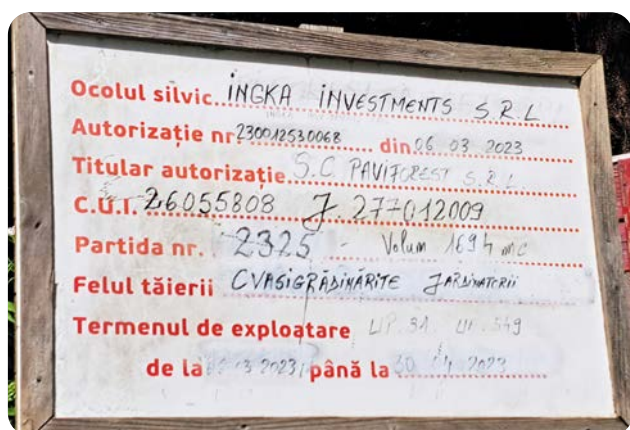 Ocolul silvic INGKA INVESTMENTS S.R.L
Autorizație nr 230012530068 din 06 03 2023
Titular autorizație S.C. PAVIFOREST S.R.L.
C.U.I. 26055808 J. 277012009
Partida nr. 2325 - Volum 1694 mc
Felul tăierii CVASIGRĂDINĂRITE JARDINATORII
Termenul de exploatare UP. 31. 549
de la 2023 până la 30 2023